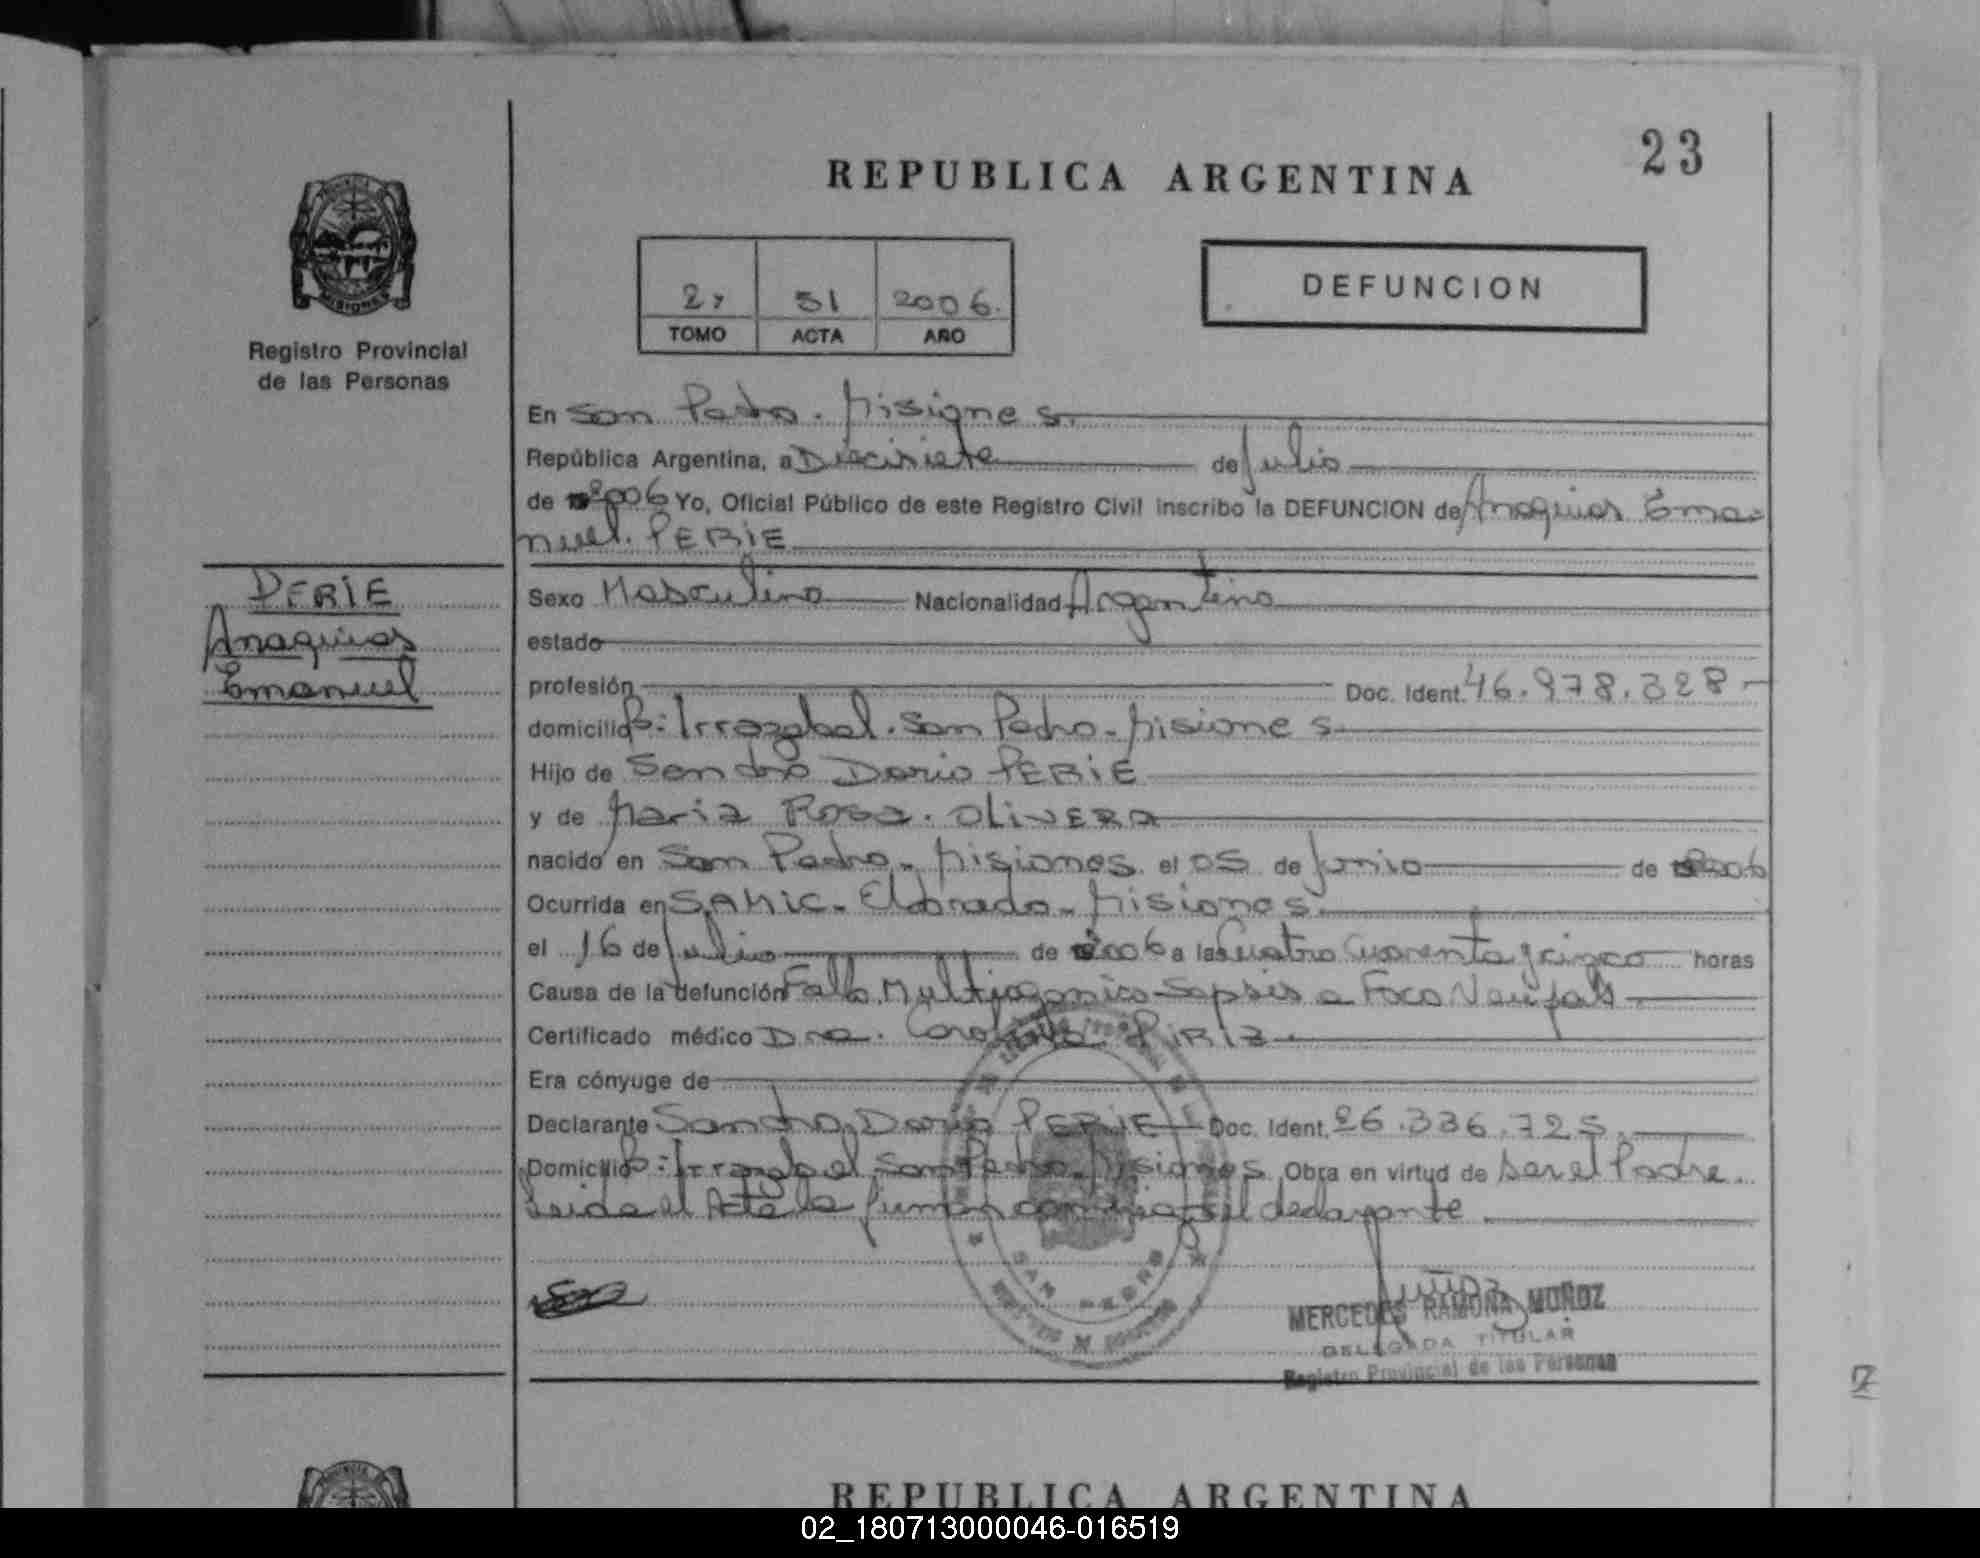 23
REPUBLICA ARGENTINA
PROVINCIA DE
MISIONES
Registro Provincial
de las Personas
2º 51 2006.
TOMO ACTA AÑO
DEFUNCION
En San Pedro. Misiones.
República Argentina, a Diecisiete de Julio
de 2006 Yo, Oficial Público de este Registro Civil inscribo la DEFUNCION de Anaquias Ema-
nuel. PERIE
PERIE
Anaquias
Emanuel
Sexo Masculino Nacionalidad Argentino
estado
profesión Doc. Ident. 46.978.328-
domicilio Bº: Irrazabal. San Pedro. Misiones.
Hijo de Sandro Dario PERIE
y de Maria Rosa. OLIVERA
nacido en San Pedro. Misiones. el 05 de Junio de 2006
Ocurrida en SAMIC. Eldorado. Misiones.
el 16 de Julio de 2006 a las Cuatro Cuarenta y cinco horas
Causa de la defunción Falla Multiorganico-Sepsis a Foco
Certificado médico Dra. PIRIZ.
Era cónyuge de
Declarante Sandro Dario PERIE Doc. Ident. 26.336.725.
Domicilio Bº: Irrazabal San Pedro. Misiones. Obra en virtud de Ser el Padre.
Leida el Acta la firman conmigo el declarante
SAN PEDRO
MERCEDES RAMONA MUÑOZ
DELEGADA TITULAR
Registro Provincial de las Personas
REPUBLICA ARGENTINA
02_180713000046-016519